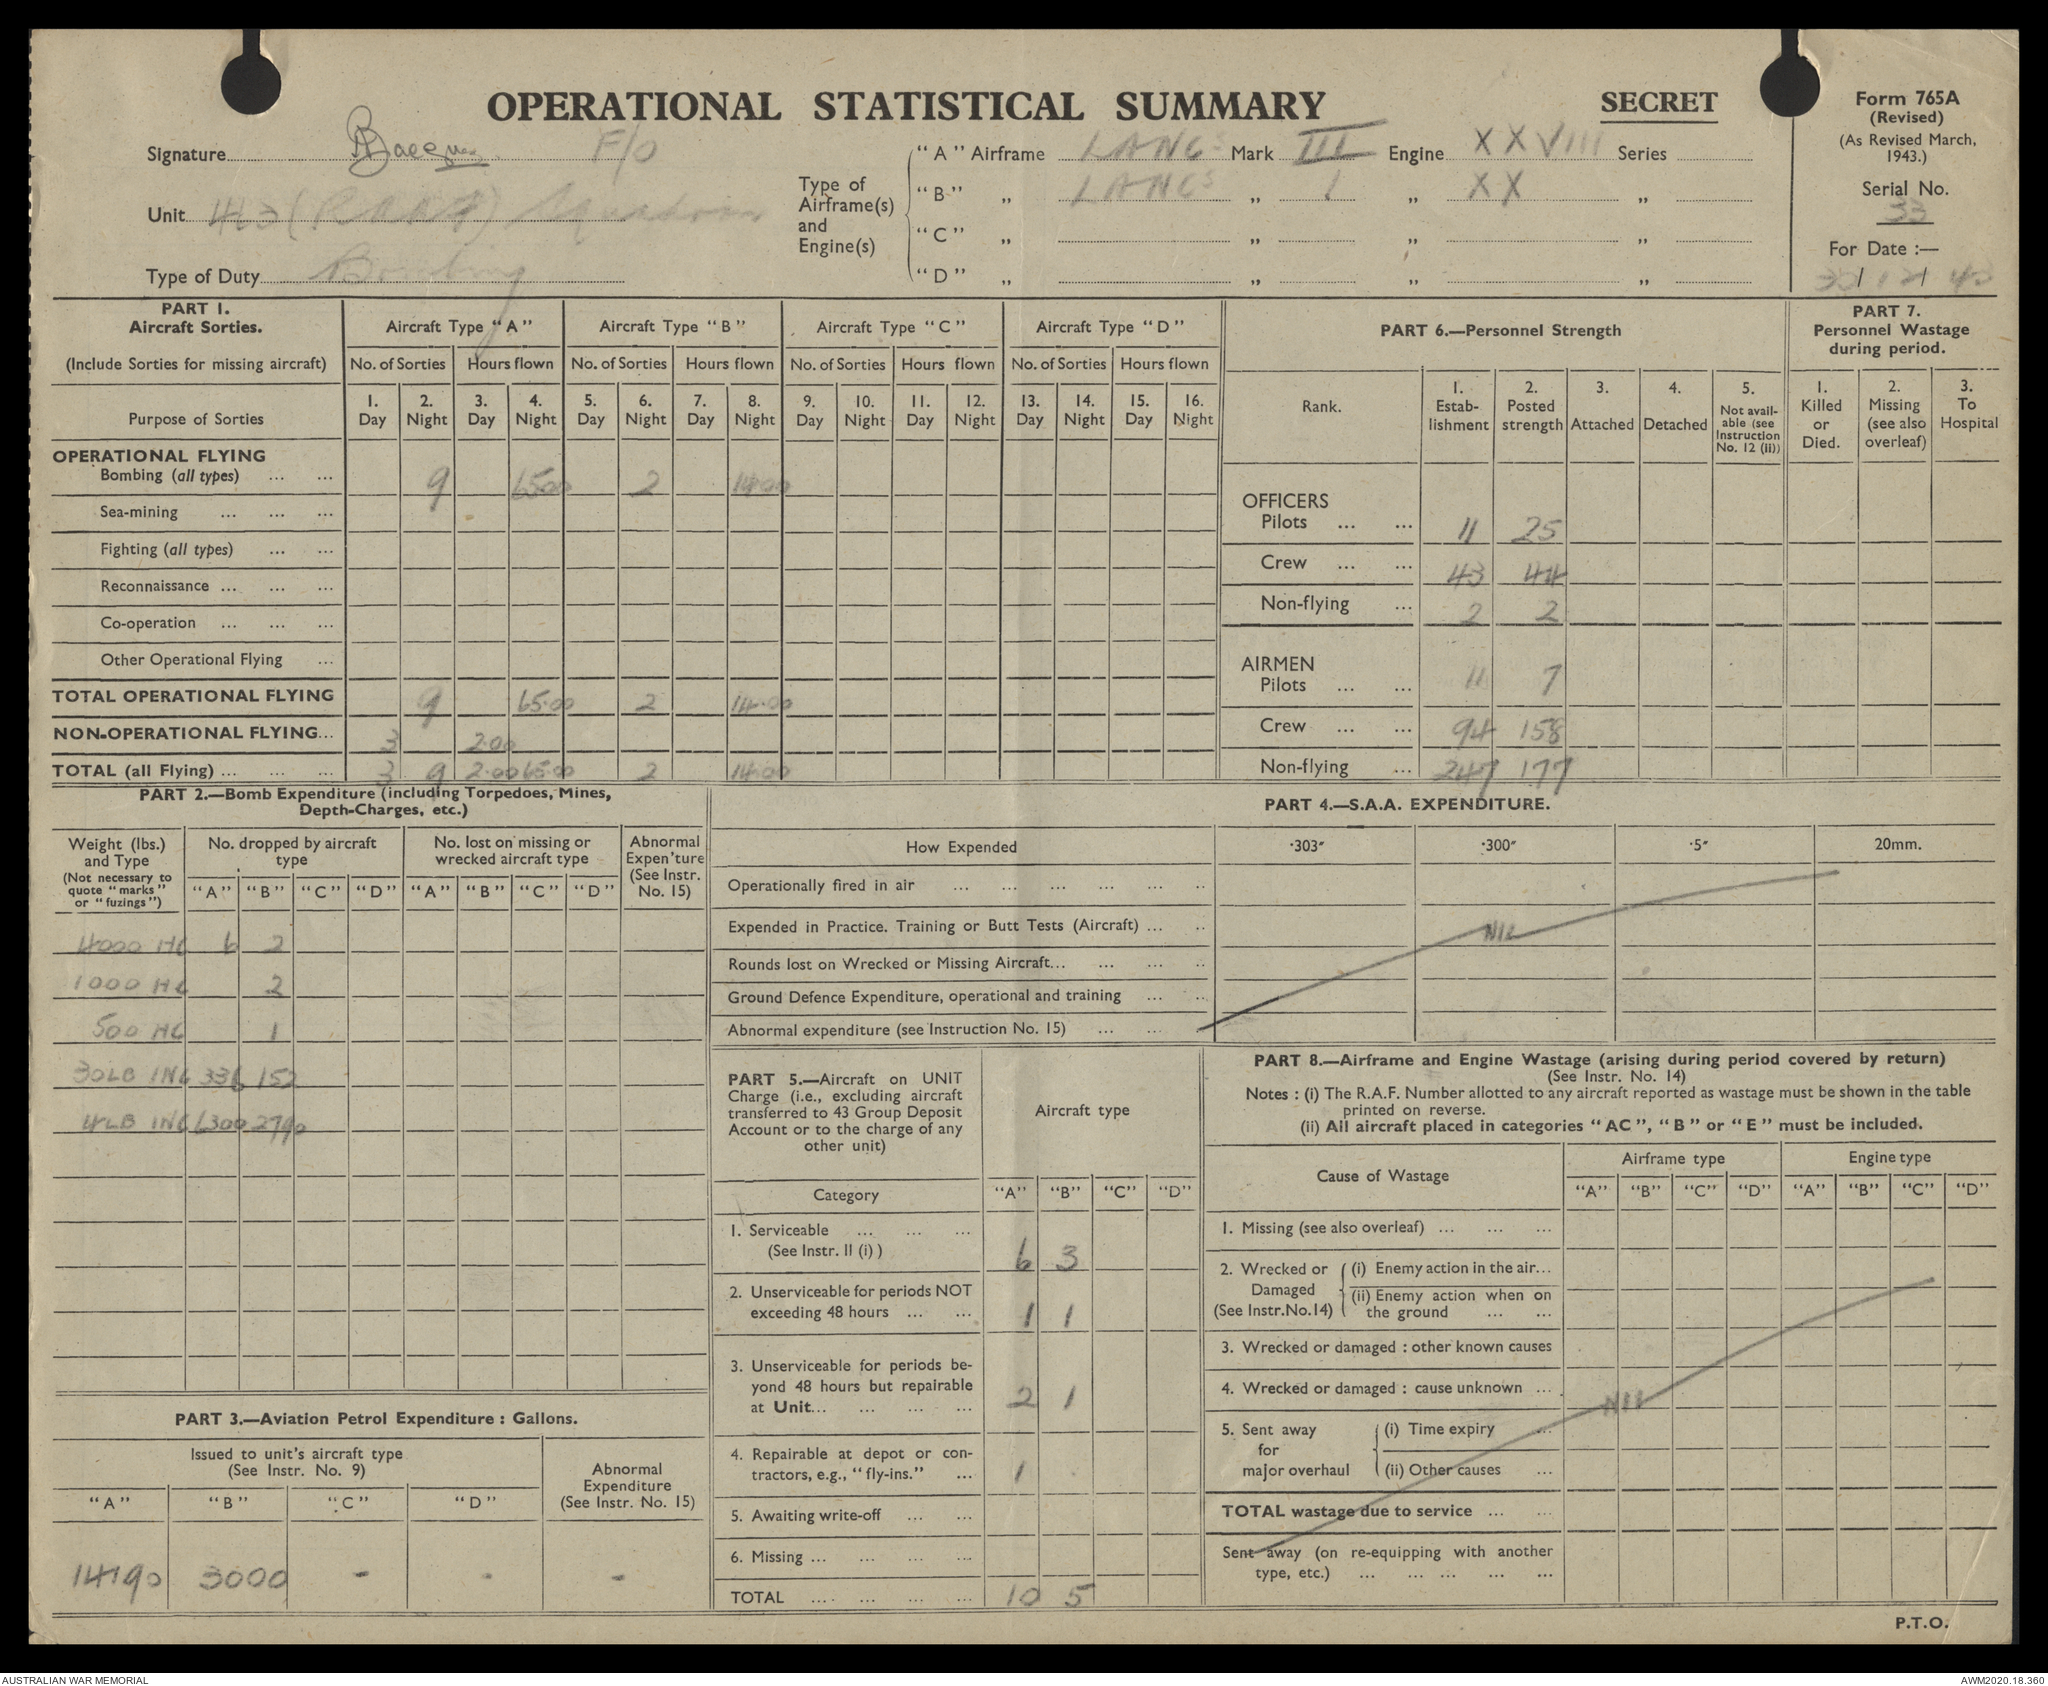 OPERATIONAL STATISTICAL SUMMARY
SECRET
Form 765A
(Revised)
(As Revised March,
1943.)
Serial No.
33
For Date :—
Signature F/O
Unit (RAAF) Squadron
Type of Duty Bombing
Type of
Airframe(s)
and
Engine(s)
"A" Airframe LANCS Mark III Engine XXVIII Series
"B" „ LANCS „ 1 „ XX „
"C" „ „ „ „
"D" „ „ „ „
PART 1.
Aircraft Sorties.
(Include Sorties for missing aircraft)
Purpose of Sorties
Aircraft Type "A" Aircraft Type "B" Aircraft Type "C" Aircraft Type "D"
No. of Sorties Hours flown No. of Sorties Hours flown No. of Sorties Hours flown No. of Sorties Hours flown
1. 2. 3. 4. 5. 6. 7. 8. 9. 10. 11. 12. 13. 14. 15. 16.
Day Night Day Night Day Night Day Night Day Night Day Night Day Night Day Night
OPERATIONAL FLYING
Bombing (all types) ... ... 9 65.00 2 14.00
Sea-mining ... ... ...
Fighting (all types) ... ...
Reconnaissance ... ... ...
Co-operation ... ... ...
Other Operational Flying ...
TOTAL OPERATIONAL FLYING 9 65.00 2 14.00
NON-OPERATIONAL FLYING... 3 2.00
TOTAL (all Flying) ... ... ... 3 9 2.00 65.00 2 14.00
PART 6.—Personnel Strength
Rank.
1. Estab-lishment
2. Posted strength
3. Attached
4. Detached
5. Not avail-able (see Instruction No. 12 (ii))
OFFICERS
Pilots ... ... 11 25
Crew ... ... 43 44
Non-flying ... 2 2
AIRMEN
Pilots ... ... 11 7
Crew ... ... 94 158
Non-flying ... 247 177
PART 7.
Personnel Wastage
during period.
1. Killed or Died.
2. Missing (see also overleaf)
3. To Hospital
PART 2.—Bomb Expenditure (including Torpedoes, Mines,
Depth-Charges, etc.)
Weight (lbs.)
and Type
(Not necessary to
quote "marks"
or "fuzings")
No. dropped by aircraft
type
No. lost on missing or
wrecked aircraft type
Abnormal
Expen'ture
(See Instr.
No. 15)
"A" "B" "C" "D" "A" "B" "C" "D"
4000 HC 6 2
1000 HC 2
500 HC 1
30LB INC 336 152
4LB INC 6300 2790
PART 3.—Aviation Petrol Expenditure : Gallons.
Issued to unit's aircraft type
(See Instr. No. 9)
Abnormal
Expenditure
(See Instr. No. 15)
"A" "B" "C" "D"
14190 3000 - - -
PART 4.—S.A.A. EXPENDITURE.
How Expended ·303″ ·300″ ·5″ 20mm.
Operationally fired in air ... ... ... ... ... ..
Expended in Practice. Training or Butt Tests (Aircraft) ... ..
NIL
Rounds lost on Wrecked or Missing Aircraft... ... ... ..
Ground Defence Expenditure, operational and training ... ..
Abnormal expenditure (see Instruction No. 15) ... ... ...
PART 5.—Aircraft on UNIT
Charge (i.e., excluding aircraft
transferred to 43 Group Deposit
Account or to the charge of any
other unit)
Aircraft type
Category "A" "B" "C" "D"
1. Serviceable ... ... ...
(See Instr. II (i) ) 6 3
2. Unserviceable for periods NOT
exceeding 48 hours ... ... 1 1
3. Unserviceable for periods be-
yond 48 hours but repairable
at Unit... ... ... ... 2 1
4. Repairable at depot or con-
tractors, e.g., "fly-ins." ... 1
5. Awaiting write-off ... ...
6. Missing ... ... ... ...
TOTAL ... ... ... ... 10 5
PART 8.—Airframe and Engine Wastage (arising during period covered by return)
(See Instr. No. 14)
Notes : (i) The R.A.F. Number allotted to any aircraft reported as wastage must be shown in the table
printed on reverse.
(ii) All aircraft placed in categories "AC", "B" or "E" must be included.
Cause of Wastage Airframe type Engine type
"A" "B" "C" "D" "A" "B" "C" "D"
1. Missing (see also overleaf) ... ... ...
2. Wrecked or
Damaged
(See Instr.No.14)
(i) Enemy action in the air...
(ii) Enemy action when on
the ground ... ...
3. Wrecked or damaged : other known causes
4. Wrecked or damaged : cause unknown ...
NIL
5. Sent away
for
major overhaul
(i) Time expiry ...
(ii) Other causes ...
TOTAL wastage due to service ... ...
Sent away (on re-equipping with another
type, etc.) ... ... ... ... ...
P.T.O.
AUSTRALIAN WAR MEMORIAL
AWM2020.18.360